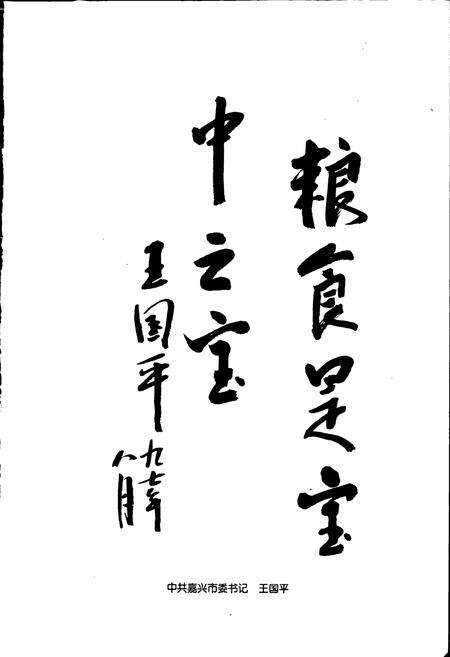 粮食是宝
中之宝
王国平
九七年
八月
中共嘉兴市委书记 王国平